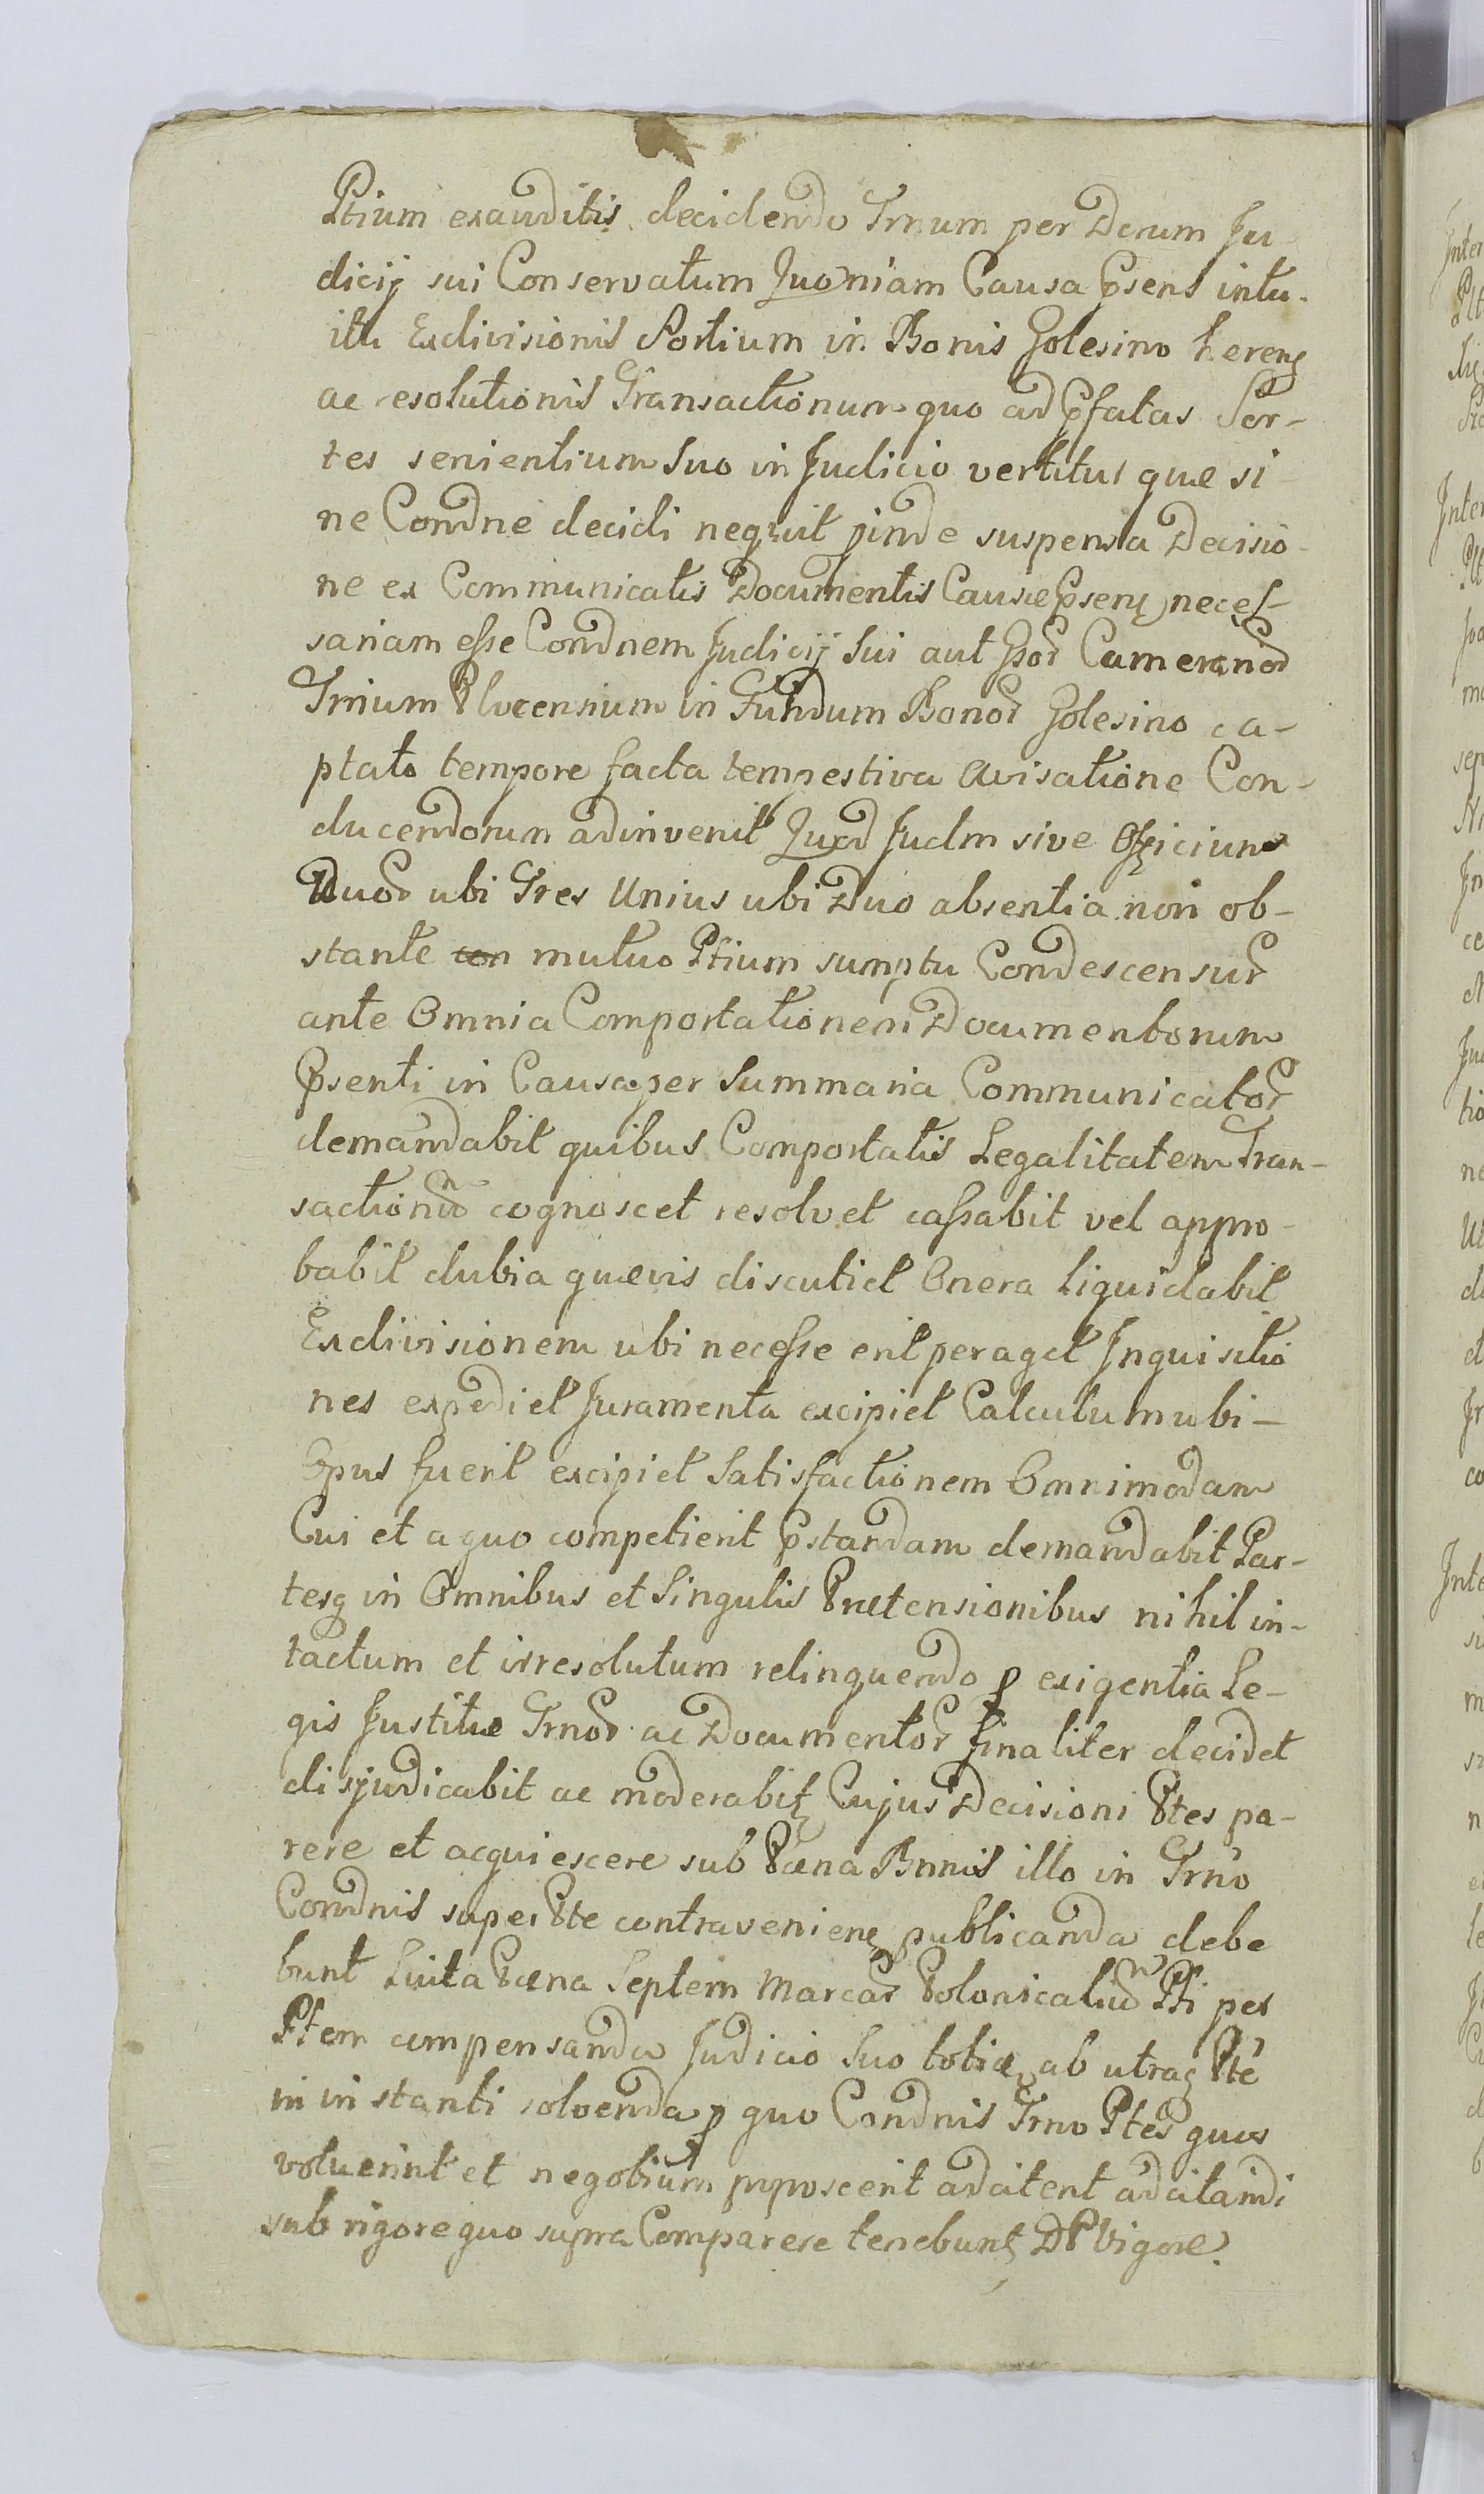 Ptium exauditis decidendo Trnum per Dcrum Ju
dicij sui Conservatum Quoniam Causa Psens intu-
itu Exdivisionis Sortium in Bonis Golesino herenș
ac resolutionis Transactionum quo ad Pfatas Sor-
tes servientium Suo in Judicio vertitur quæ si
ne Condne decidi nequit jinde suspensa Decisio-
ne ex Communicatis Documentis Causæ Psenș neces-
sariam esse Condnem Judicij Sui aut Gsor Cameranor
Trrium Plocensium in Fundum Bonor Golesino ca-
ptato tempore facta tempestiva Avisatione Con-
ducendorum adinvenit Quod Judm sive Officium
Duor ubi Tres Unius ubi Duo absentia non ob-
stante con mutuo Ptium sumptu Condescensur
ante Omnia Comportationem Documentorum
Psenti in Causa per Summaria Communicator
demandabit quibus Comportatis Legalitatem Tran-
sactionu cognoscet resolvet cassabit vel appro-
babit dubia quævis discutiet Onera liquidabit
Exdivisionem ubi necesse erit peraget Inquisitio
nes expediet Juramenta excipiet Calculum ubi-
Opus fuerit excipiet Satisfactionem Omnimodam
Cui et a quo competierit Pstandam demandabit Par-
tesq in Omnibus et Singulis Prætensionibus nihil in-
tactum et irresolutum relinquendo p exigentia Le-
gis Justitiæ Trnor ac Documentor finaliter decidet
disjudicabit ac moderabitꝫ Cujus Decisioni Ptes pa-
rere et acquiescere sub Pæna Bnnis illo in Trno
Condnis super Pte contravenienꝫ publicanda debe
bunt Luita Pæna Septem Marcar Polonicaliu Pti per
Ptem compensanda Judicio Suo totiæ ab utraq Pte
in instanti solvenda p quo Condnis Trno Ptes quos
voluerint et negotium poposcerit adcitent adcitandi
sub rigore quo supra Comparere tenebuntꝫ DP Vigore.